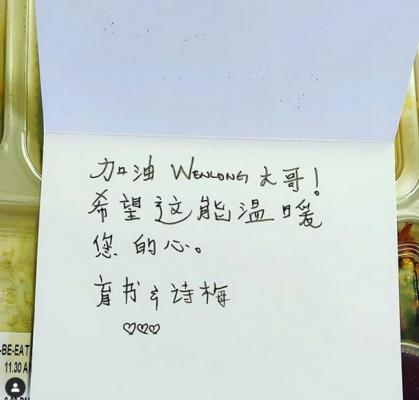 加油 WENLONG 大哥!
希望这能温暖
您的心。
育书 & 诗梅
♡♡♡
-BE-EAT
11.30 A